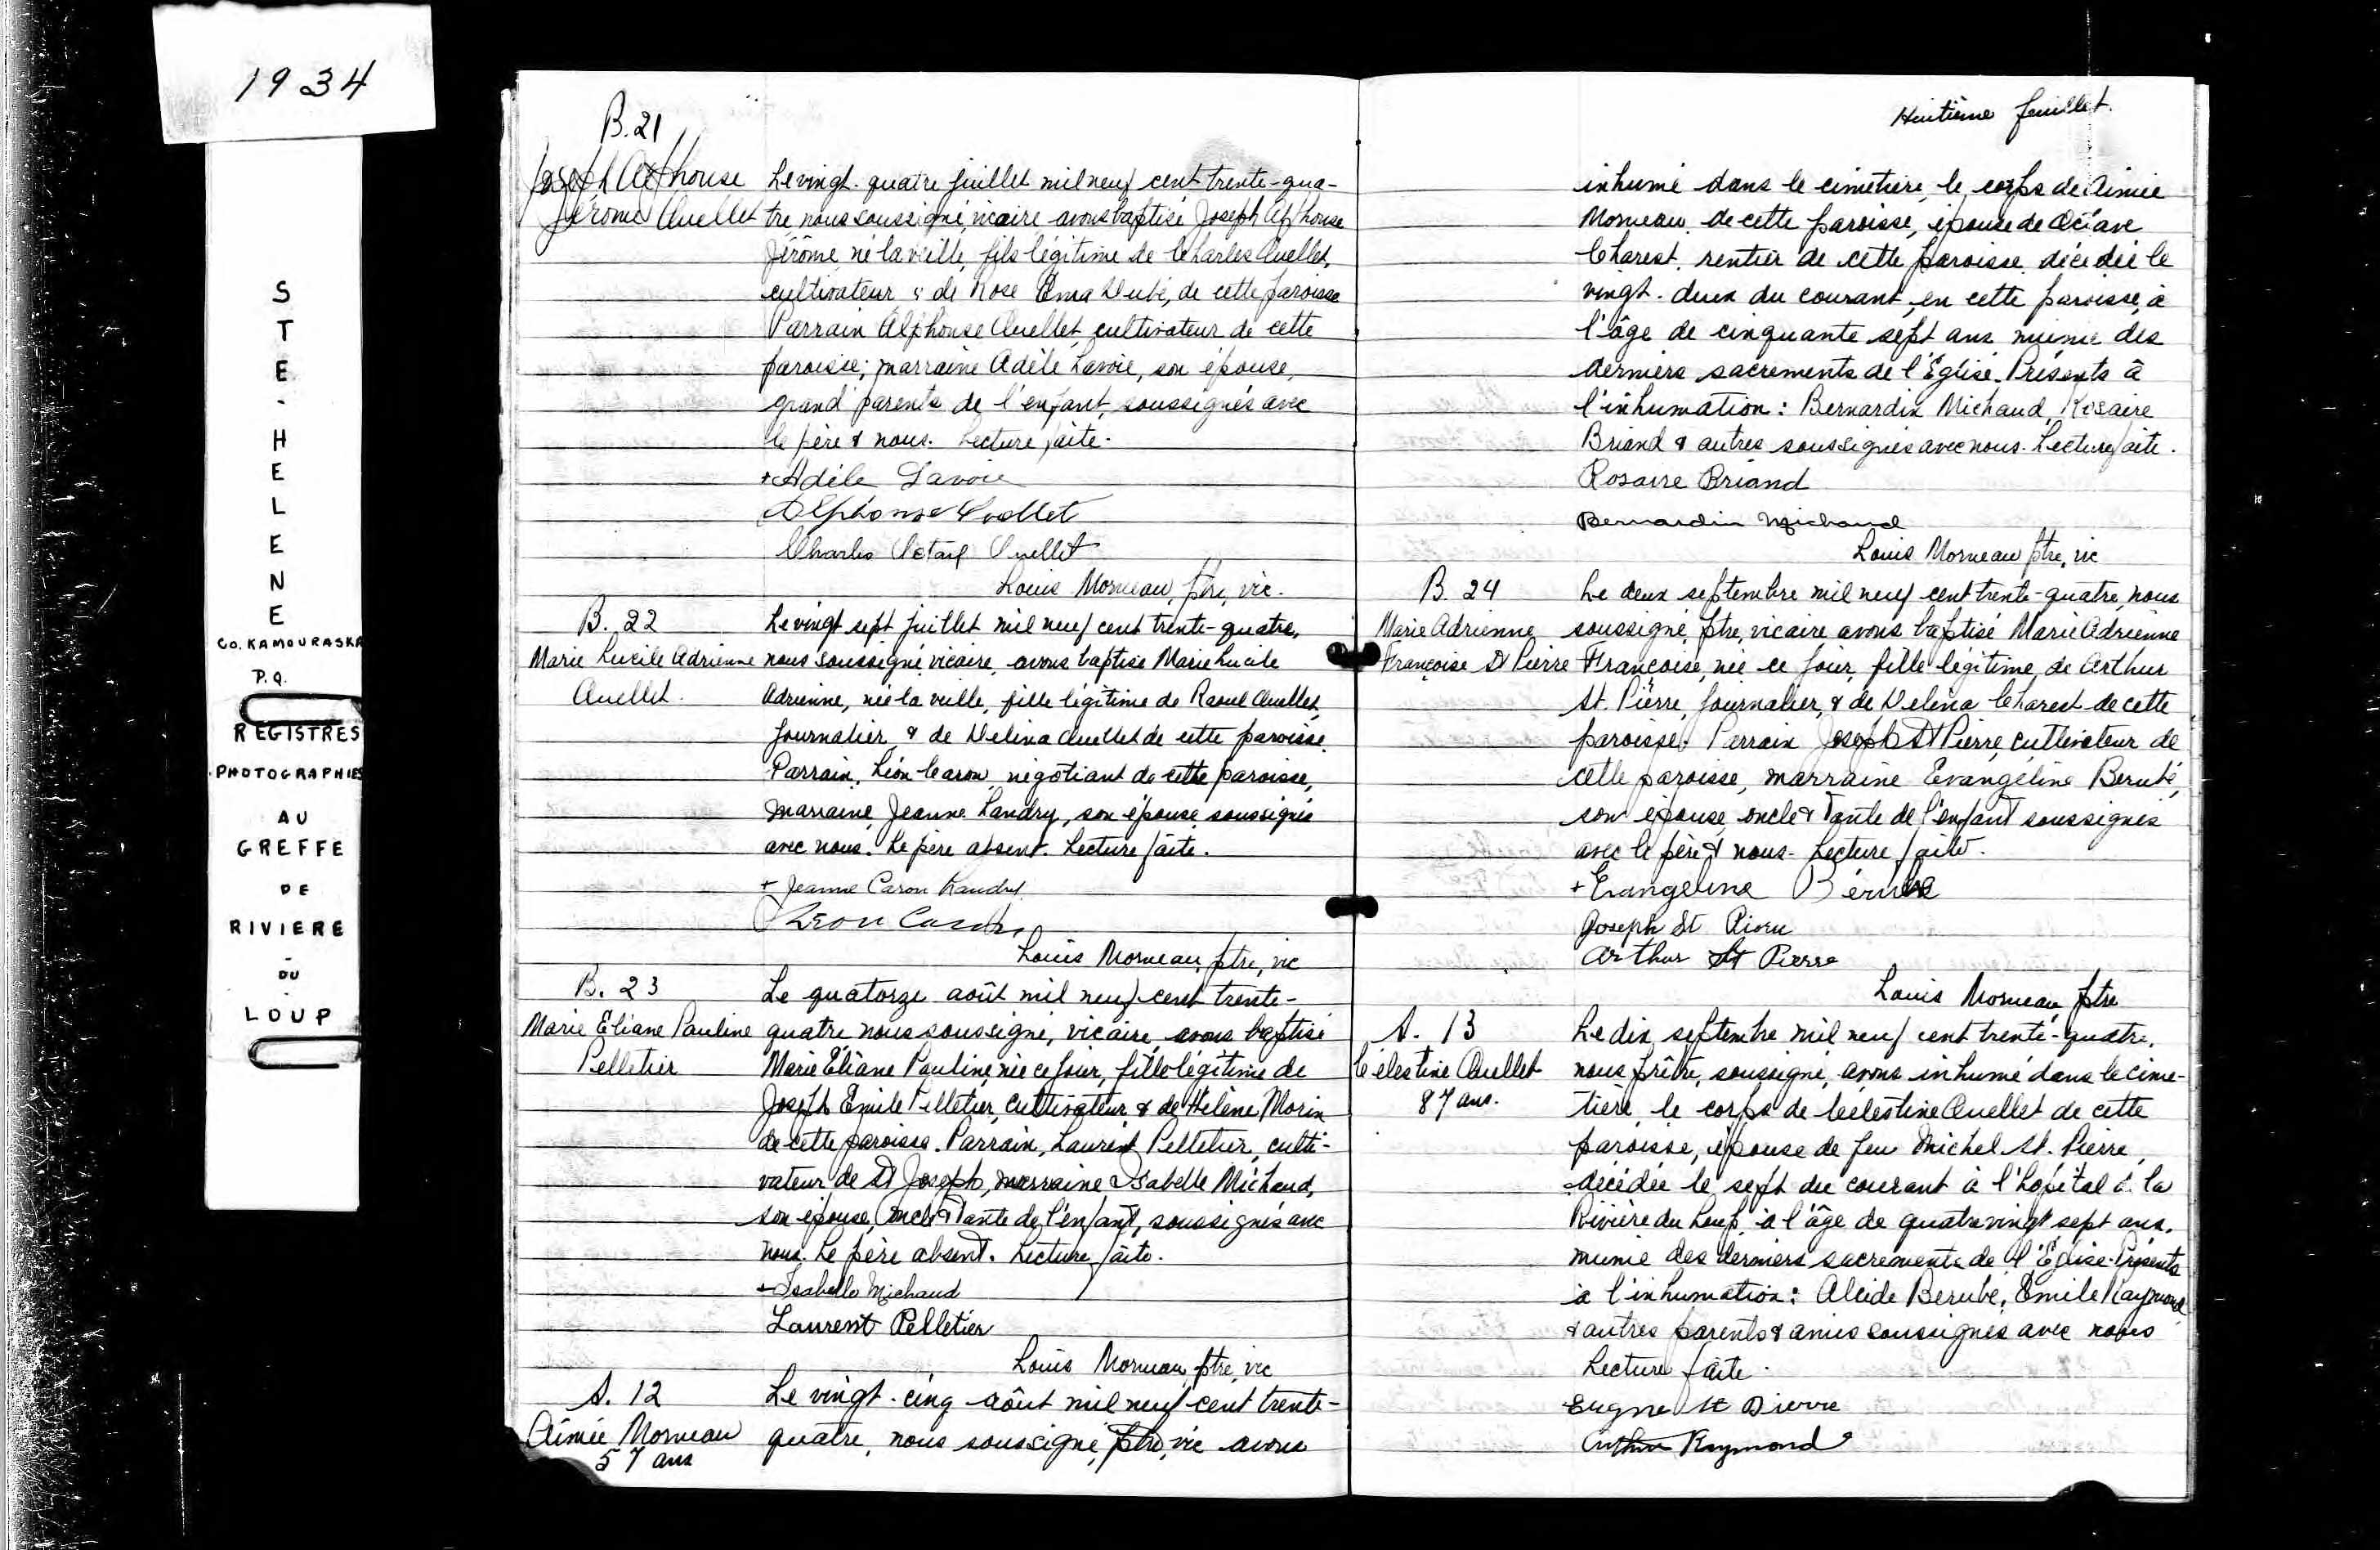 1934
STE-HELENE
CO. KAMOURASKA
P.Q.
REGISTRES
PHOTOGRAPHIES
AU
GREFFE
DE
RIVIERE
-
DU
-
LOUP
B. 21
Joseph Alphonse
Jérôme Ouellet
Le vingt-quatre juillet mil neuf cent trente-qua-
tre, nous soussigné, vicaire avons baptisé Joseph Alphonse
Jérôme, né la veille, fils légitime de Charles Ouellet,
cultivateur & de Rose Ema Dubé, de cette paroisse
Parrain Alphonse Ouellet, cultivateur de cette
paroisse; marraine Adèle Lavoie, son épouse,
grand parents de l'enfant, soussignés avec
le père & nous. Lecture faite.
+ Adéle Lavoie
Alphonse Ouellet
Charles Ouellet
Louis Morneau, ptre, vic.
B. 22
Marie Lucile Adrienne
Ouellet.
Le vingt sept juillet mil neuf cent trente-quatre,
nous soussigné, vicaire, avons baptisé Marie Lucile
Adrienne, née la veille, fille légitime de Raoul Ouellet,
journalier, & de Delina Ouellet de cette paroisse.
Parrain, Léon Caron, négotiant de cette paroisse,
marraine, Jeanne Landry, son épouse soussignés
avec nous. Le père absent. Lecture faite.
+ Jeanne Caron Landry
Léon Caron
Louis Morneau, ptre, vic
B. 23
Marie Éliane Pauline
Pelletier
Le quatorze août mil neuf cent trente-
quatre, nous soussigné, vicaire, avons baptisé
Marie Éliane Pauline, née ce jour, fille légitime de
Joseph Émile Pelletier, cultivateur & de Hélène Morin
de cette paroisse. Parrain, Laurent Pelletier, culti-
vateur de St Joseph, marraine Isabelle Michaud,
son épouse, oncle & tante de l'enfant, soussignés avec
nous. Le père absent. Lecture faite.
+ Isabelle Michaud
Laurent Pelletier
Louis Morneau, ptre, vic
S. 12
Aimée Morneau
57 ans
Le vingt-cinq août mil neuf cent trente-
quatre, nous soussigné, ptre, vic avons
Huitième feuillet.
inhumé dans le cimetière, le corps de Aimée
Morneau, de cette paroisse, épouse de Octave
Charest, rentier de cette paroisse, décédée le
vingt-deux du courant, en cette paroisse, à
l'âge de cinquante sept ans munie des
derniers sacrements de l'Église. Présents à
l'inhumation: Bernardin Michaud, Rosaire
Briand & autres soussignés avec nous. Lecture faite.
Rosaire Briand
Bernardin Michaud
Louis Morneau ptre, vic
B. 24
Marie Adrienne
Françoise St Pierre
Le deux septembre mil neuf cent trente-quatre, nous
soussigné, ptre, vicaire avons baptisé Marie Adrienne
Françoise, née ce jour, fille légitime, de Arthur
St. Pierre, journalier, & de Delina Charest de cette
paroisse. Parrain Joseph St Pierre, cultivateur de
cette paroisse, marraine Évangéline Berubé,
son épouse, oncle & tante de l'enfant soussignés
avec le père & nous. Lecture faite.
+ Evangeline Bérubé
Joseph St Pierre
Arthur St Pierre
Louis Morneau, ptre
S. 13
Célestine Ouellet
87 ans.
Le dix septembre mil neuf cent trente-quatre,
nous prêtre, soussigné, avons inhumé dans le cime-
tière, le corps de Célestine Ouellet de cette
paroisse, épouse de feu Michel St. Pierre,
décédée le sept du courant à l'hôpital à la
Rivière du Loup, à l'âge de quatre vingt sept ans,
munie des derniers sacrements de l'Église. Présents
à l'inhumation: Alcide Berubé, Émile Raymond
& autres parents & amis soussignés avec nous
Lecture faite.
Eugne St Pierre
Arthur Raymond